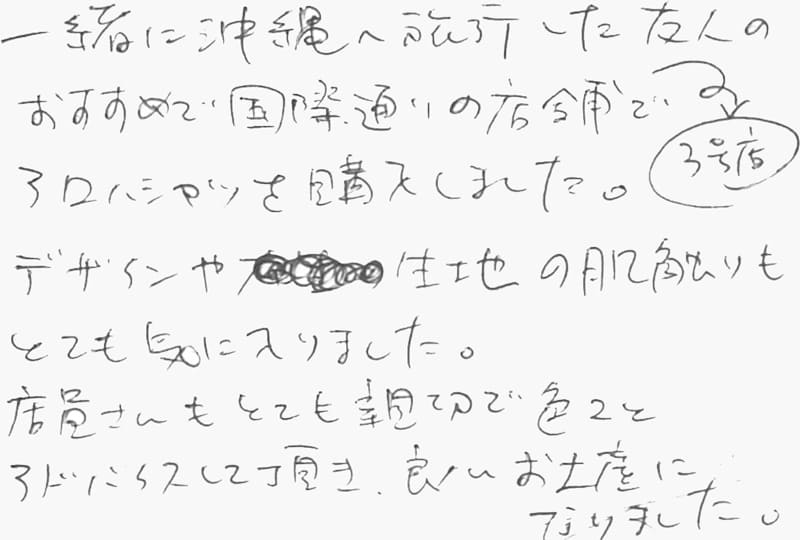 一緒に沖縄へ旅行した友人の
おすすめで国際通りの店舗で
3号店
アロハシャツを購入しました。
デザインや生地の肌触りも
とても気に入りました。
店員さんもとても親切で色々と
アドバイスして頂き、良いお土産に
なりました。